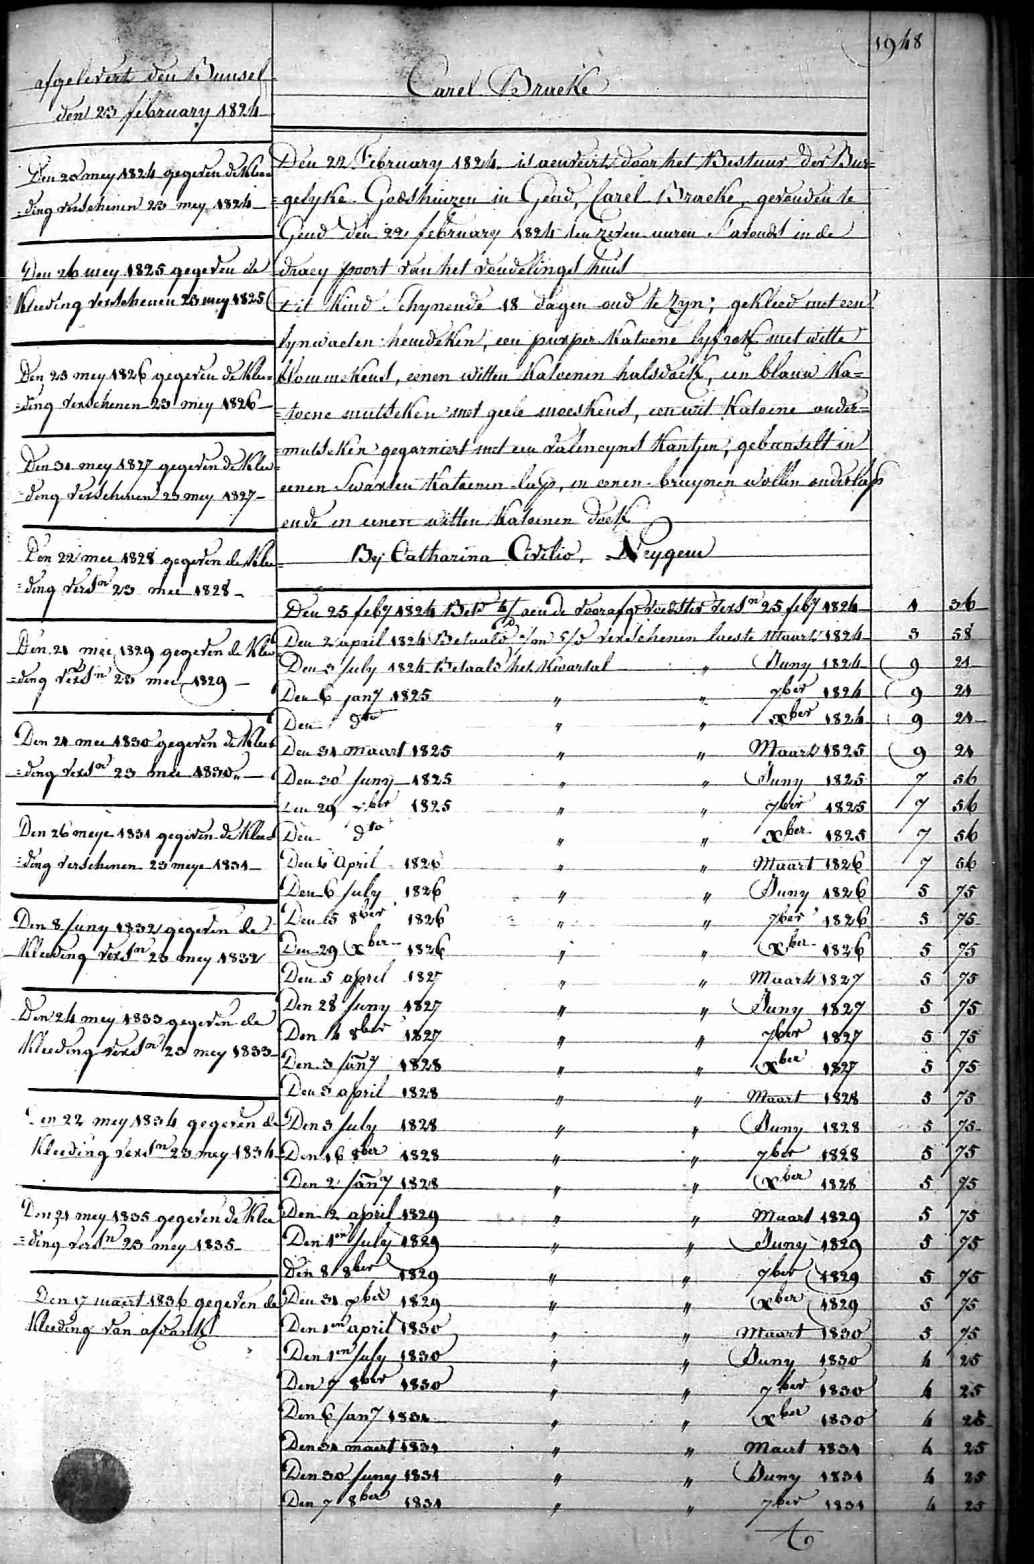 1948
afgelevert den Bunsel
den 23 february 1824
Den 25 mey 1824 gegeven de klee=
=ding verschenen 23 mey 1824
Den 26 mey 1825 gegeven de
kleeding verschenen 23 mey 1825
Den 23 mey 1826 gegeven de klee=
=ding verschenen 23 mey 1826
Den 31 mey 1827 gegeven de klee=
=ding verschenen 23 mey 1827
Den 22 mei 1828 gegeven de klee=
=ding versn 23 mei 1828
Den 21 mei 1829 gegeven de klee
=ding versn 23 mei 1829
Den 24 mei 1830 gegeven de klee=
=ding versn 23 mei 1830
Den 26 meye 1831 gegeven de klee=
=ding verschenen 23 meye 1831
Den 8 Juny 1832 gegeven de
kleeding versn 23 mey 1832
Den 24 mey 1833 gegeven de
kleeding versn 23 mey 1833
Den 22 mey 1834 gegeven de
kleeding versn 23 mey 1834
Den 21 mey 1835 gegeven de klee
=ding versn 23 mey 1835
Den 17 maert 1836 gegeven de
kleeding van afdank
Carel Bracke
Den 22 February 1824 is aenveirt door het Bestuur der Bur=
=gelyke Godshuizen in Gend, Carel Bracke, gevonden te
Gend den 22 february 1824 ten zeven uuren s'avonds in de
draey poort van het vondelings huis
Dit kind schynende 18 dagen oud te zyn; gekleed met een
lynwaeten hemdeken, een purper katoene lyfrok met witte
blommekens, eenen witten katoenen halsdoek, een blauw ka=
=toene mutseken met geele moeskens, een wit katoene onder=
=mutseken gegarniert met een valencyns kantjen, gebunselt in
eenen swarten katoenen lap, en eenen bruynen wollen onderlap
ende in eenen witten katoenen doek
By Catharina Civilio, Nevgem
Den 25 feby 1824 Bete aen de voorafge voedster versn 25 feby 1824 1 36
Den 2 april 1824 Betaald verschenen laeste Maart 1824 3 58
Den 3 July 1824 Betaald het kwartal " Juny 1824 9 21
Den 6 jany 1825 " " 7ber 1824 9 21
Den dto " " xber 1824 9 21
Den 31 maart 1825 " " Maart 1825 9 21
Den 30 Juny 1825 " " Juny 1825 7 56
Den 29 7ber 1825 " " 7ber 1825 7 56
Den dto " " xber 1825 7 56
Den 6 April 1826 " " Maart 1826 7 56
Den 6 July 1826 " " Juny 1826 5 75
Den 5 8ber 1826 " " 7ber 1826 5 75
Den 29 xber 1826 " " xber 1826 5 75
Den 5 april 1827 " " Maart 1827 5 75
Den 28 Juny 1827 " " Juny 1827 5 75
Den 4 8ber 1827 " " 7ber 1827 5 75
Den 3 jany 1828 " " xber 1827 5 75
Den 3 april 1828 " " Maart 1828 5 75
Den 3 July 1828 " " Juny 1828 5 75
Den 16 8ber 1828 " " 7ber 1828 5 75
Den 2 jany 1828 " " xber 1828 5 75
Den 2 april 1829 " " Maart 1829 5 75
Den 1en July 1829 " " Juny 1829 5 75
Den 8 8ber 1829 " " 7ber 1829 5 75
Den 31 xber 1829 " " xber 1829 5 75
Den 1en april 1830 " " Maart 1830 5 75
Den 1en July 1830 " " Juny 1830 4 25
Den 7 8ber 1830 " " 7ber 1830 4 25
Den 6 jany 1831 " " xber 1830 4 25
Den 31 maert 1831 " " Maert 1831 4 25
Den 30 Juny 1831 " " Juny 1831 4 25
Den 7 8ber 1831 " " 7ber 1831 4 25